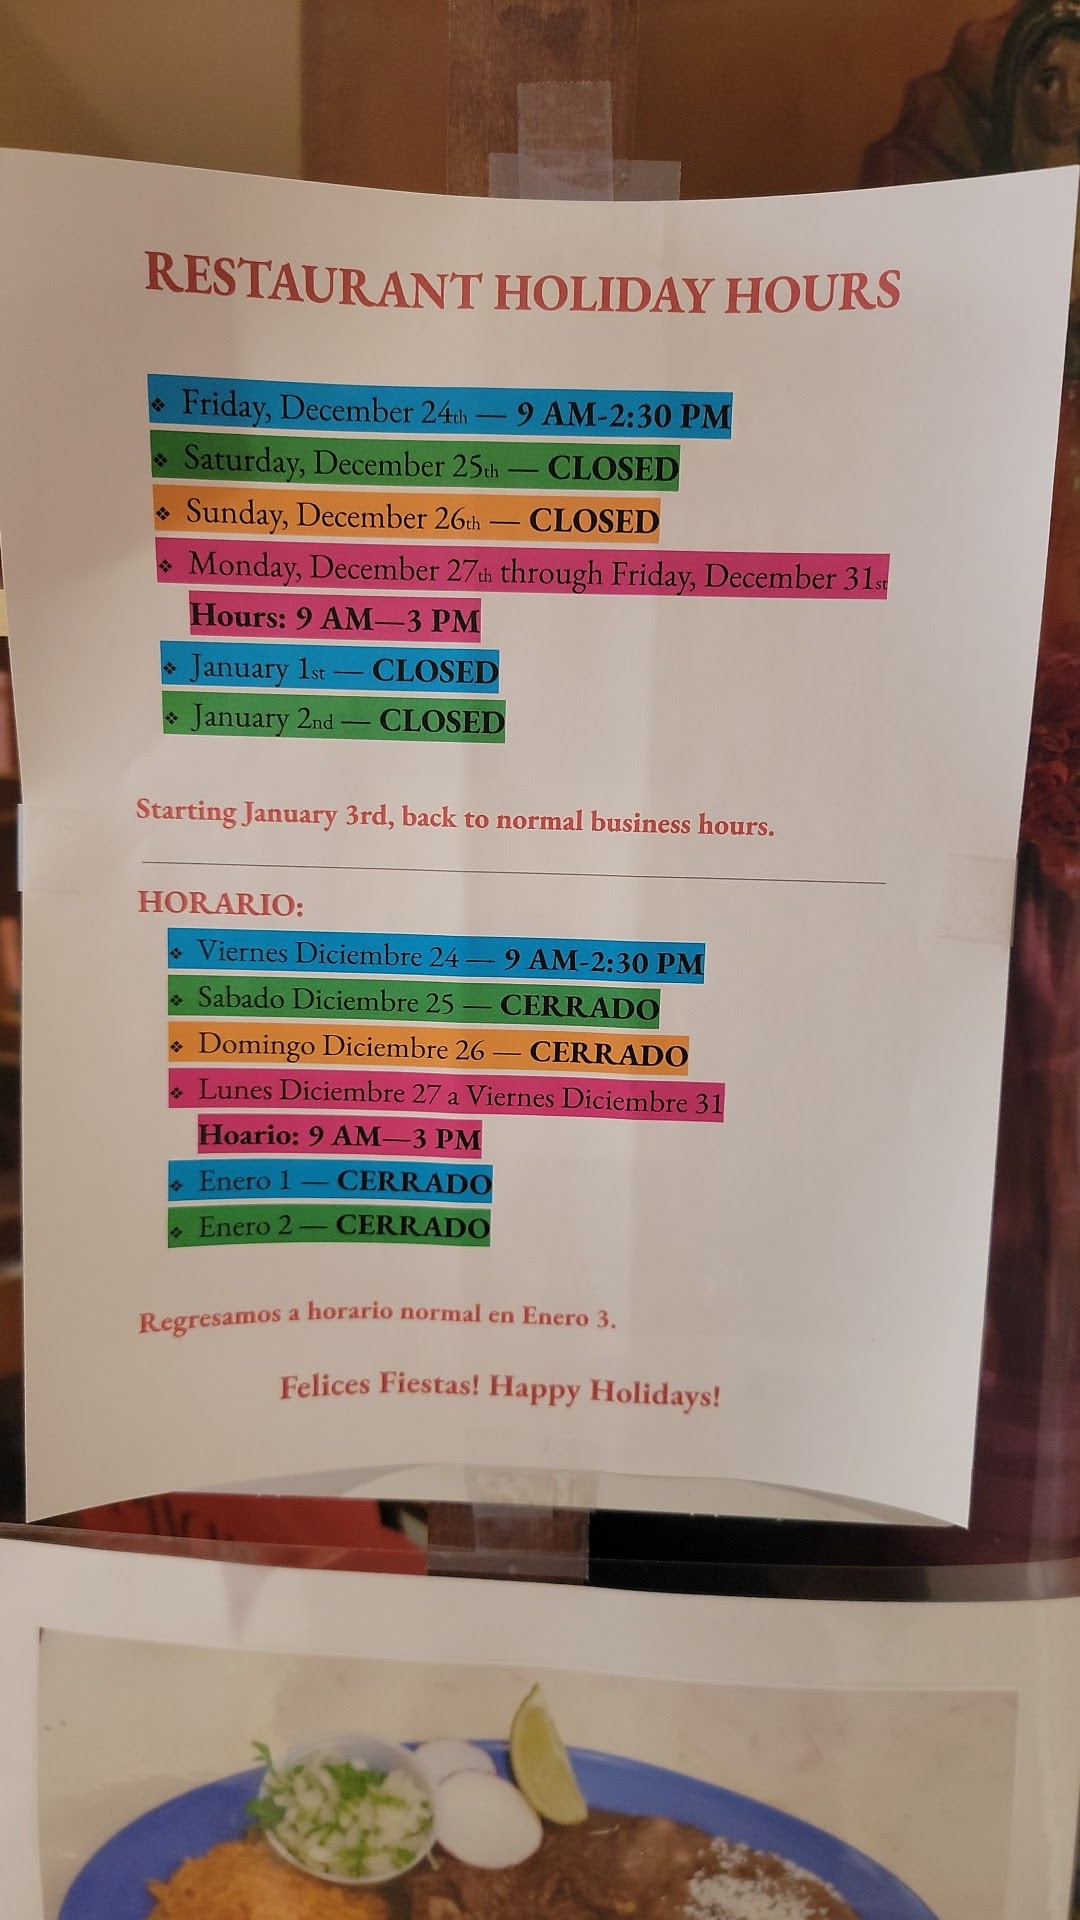 RESTAURANT HOLIDAY HOURS
❖ Friday, December 24th — 9 AM-2:30 PM
❖ Saturday, December 25th — CLOSED
❖ Sunday, December 26th — CLOSED
❖ Monday, December 27th through Friday, December 31st
Hours: 9 AM—3 PM
❖ January 1st — CLOSED
❖ January 2nd — CLOSED
Starting January 3rd, back to normal business hours.
HORARIO:
❖ Viernes Diciembre 24 — 9 AM-2:30 PM
❖ Sabado Diciembre 25 — CERRADO
❖ Domingo Diciembre 26 — CERRADO
❖ Lunes Diciembre 27 a Viernes Diciembre 31
Hoario: 9 AM—3 PM
❖ Enero 1 — CERRADO
❖ Enero 2 — CERRADO
Regresamos a horario normal en Enero 3.
Felices Fiestas! Happy Holidays!